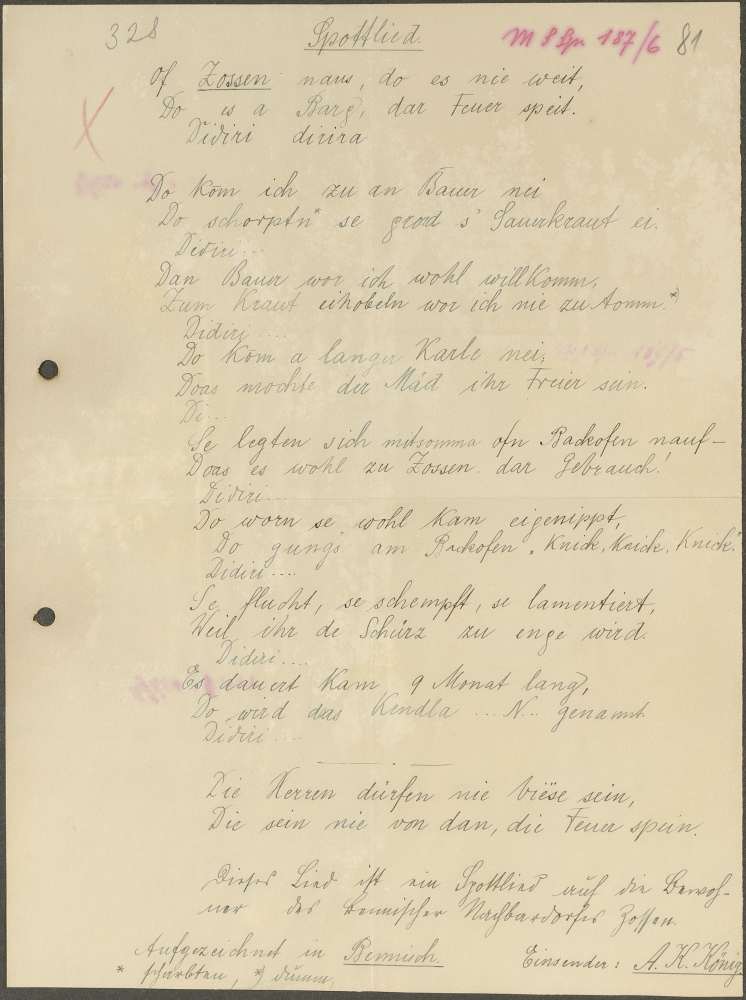 328 Spottlied. M 8 Sp 187/6 81
Of Zossen naus, do es nie weit,
Do is a Barg, dar Feuer speit.
Didiri dirira
Do kom ich zu an Bauer nei
Do schorptn* se grod s' Sauerkraut ei.
Didiri...
Dan Bauer wor ich wohl willkomm,
Zum Kraut eihobeln wor ich nie zu tomm.*)
Didiri ....
Do kom a langer Karle nei,
Doas mochte der Mád ihr Freier sein.
Di...
Se legten sich mitsomma ofn Backofen nauf –
Doas es wohl zu Zossen dar Gebrauch!
Didiri....
Do worn se wohl kam eigenippt,
Do gung's am Backofen „Knick, Knick, Knick."
Didiri....
Se flucht, se schempft, se lamentiert,
Weil ihr de Schürz zu enge wird.
Didiri....
Es dauert kam 9 Monat lang,
Do wird das Kendla ... N... genannt
Didiri....
Die Herren dürfen nie biëse sein,
Die sein nie von dan, die Feuer spein.
Dieses Lied ist ein Spottlied auf die Bewoh-
ner des bennischer Nachbardorfes Zossen.
Aufgezeichnet in Bennisch. Einsender: A. K. König
* schärbten, *) dumm,